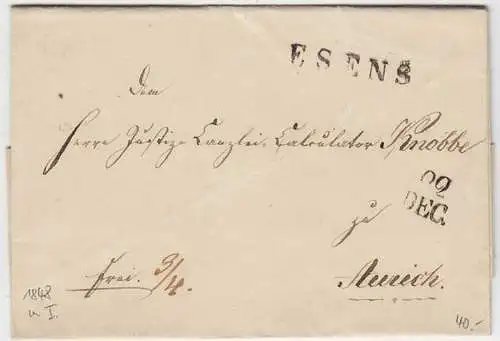 ESENS
Dem
Herrn Justiz Canzlei-Calculator Knobbe
22
DEC.
zu
Frei. 3/4.
Aurich.
1848
u I.
40.-